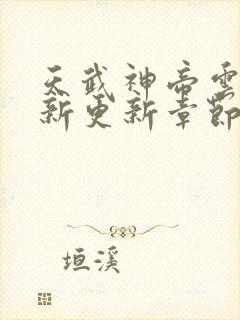 天武神帝雲
新更新章節
垣溪